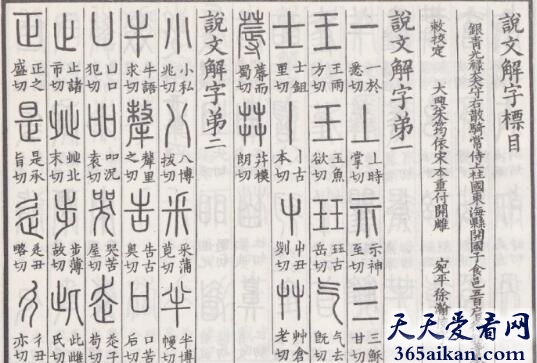 說文解字標目
銀青光祿大夫守右散騎常侍上柱國東海縣開國子食邑五百戶
敕校定 大興朱筠依宋本重付開雕 宛平徐瀚
說文解字弟一
一 一於悉切 丄 丄時掌切 示 示神至切 三 三穌甘切
王 王雨方切 玉 玉魚欲切 玨 玨古岳切 气 气去既切
士 士鉏里切 丨 丨古本切 屮 屮丑列切 艸 艸倉老切
蓐 蓐而蜀切 茻 茻模朗切
說文解字弟二
小 小私兆切 八 八博拔切 釆 釆蒲莧切 半 半博幔切
牛 牛語求切 犛 犛里之切 告 告古奧切 口 口苦后切
凵 凵口犯切 吅 吅況袁切 哭 哭苦屋切 走 走子苟切
止 止諸市切 癶 癶北末切 步 步薄故切 此 此雌氏切
正 正之盛切 是 是承旨切 辵 辵丑略切 彳 彳丑亦切
天天爱看网
365aikan.com